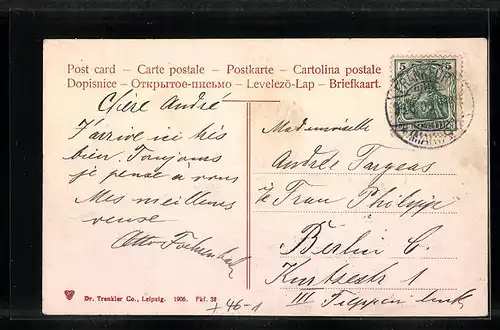 Post card – Carte postale – Postkarte – Cartolina postale
Dopisnice – Открытое-письмо – Levelező-Lap – Briefkaart.
5 5
Chère André
J'arrive ici très
bien. Toujours
je pense à vous
Mes meilleurs
Otto
Mademoiselle
Andrée Fargeas
Frau Philipp
Berlin C.
Kurzestr 1
III Treppen links
Dr. Trenkler Co., Leipzig. 1906. Pkf. 38
+46-1